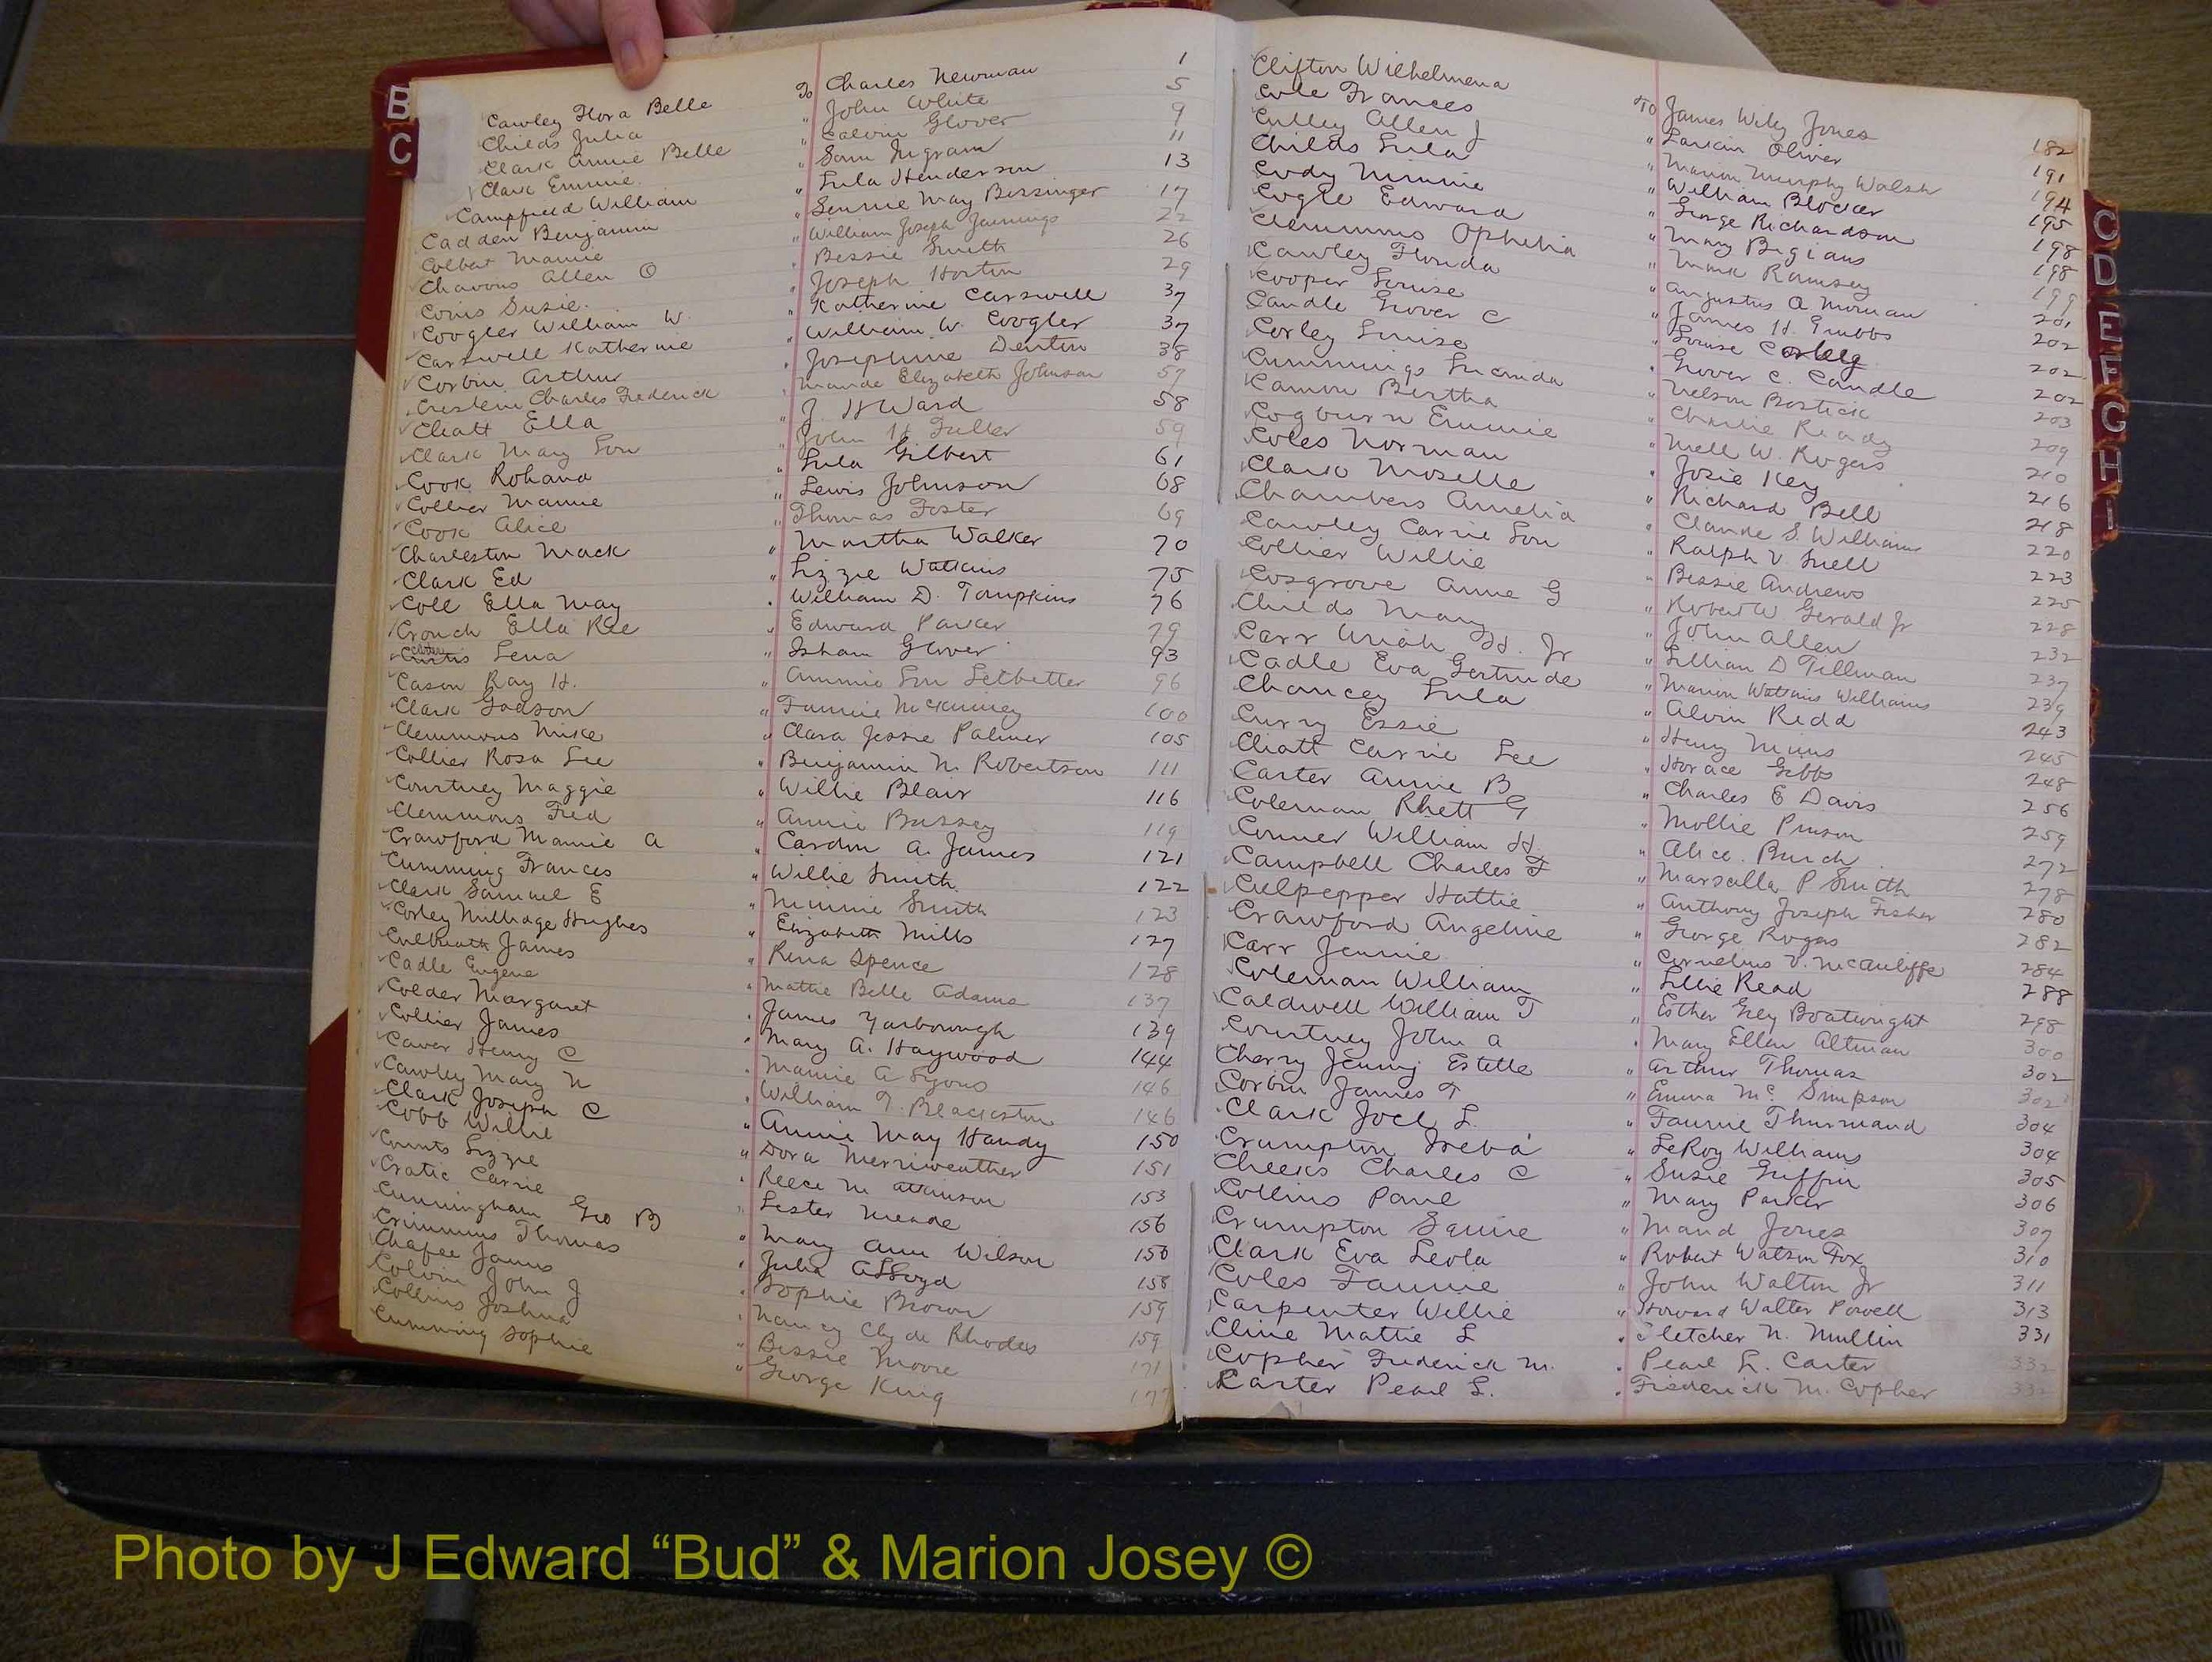 B
C
Cawley Flora Belle To Charles Newman 1
Childs Julia " John White 5
Clark Annie Belle " Calvin Glover 9
Clark Emmie " Sam Ingram 11
Campfield William " Lula Henderson 13
Cadden Benjamin " Sennie May Bissinger 17
Colbert Mamie " William Joseph Jennings 22
Chavous Allen O " Bessie Smith 26
Susie " Joseph Horton 29
Coogler William W. " Katherine Carswell 37
Carswell Katherine " William W. Coogler 37
Corbin Arthur " Josephine Denton 38
Charles Frederick " Maude Elizabeth Johnson 57
Chatt Ella " J. H Ward 58
Clark Mary Lou " John H Fuller 59
Cook Rohand " Lula Gilbert 61
Collier Mamie " Lewis Johnson 68
Cook Alice " Thomas Foster 69
Charleston Mack " Martha Walker 70
Clark Ed " Lizzie Watkins 75
Cole Ella May " William D. Tompkins 76
Crouch Ella Ree " Edward Parker 79
Curtis Lena " Isham Glover 93
Cason Ray H. " Ammie Lou Letbetter 96
Clark Godson " Fannie McKinney 100
Clemmons Mike " Clara Jessie Palmer 105
Collier Rosa Lee " Benjamin N. Robertson 111
Courtney Maggie " Willie Blair 116
Clemmons Fred " Annie Bussey 119
Crawford Mamie A " Cardon A. James 121
Cumming Frances " Willie Smith 122
Clark Samuel E " Minnie Smith 123
Corley Milliage Hughes " Elizabeth Mills 127
Culbreath James " Rena Spence 128
Cadle Eugene " Mattie Belle Adams 137
Colder Margaret " James Yarborough 139
Collier James " Mary A. Haywood 144
Caver Henry C " Mamie A Lyons 146
Cawley Mary N " William T. Blackston 146
Clark Joseph C " Annie May Handy 150
Cobb Willie " Dora Merriweather 151
Counts Lizzie " Reece M Atkinson 153
Cratic Carrie " Lester Meade 156
Cunningham Geo B " Mary Ann Wilson 156
Crimmins Thomas " Julia A Lloyd 158
Chafee James " Sophie Brown 159
Colvin John J " Nancy Clyde Rhodes 159
Collins Joshua " Bessie Moore 171
Cumming Sophie " George King 177
Clifton Wilhelmena To James Wiley Jones 182
Cole Frances " Larkin Oliver 191
Culley Allen J " Marion Murphy Walsh 194
Childs Lula " William Blocker 195
Cody Minnie " George Richardson 198
Cogle Edward " Mary Bigians 198
Clemmons Ophelia " Mark Ramsey 199
Cawley Florida " Augustus A Morman 201
Cooper Louise " James H. Grubbs 202
Candle Grover C " Louise Corley 202
Corley Louise " Grover C. Candle 202
Cummings Lucinda " Nelson Bostick 203
Camon Bertha " Charlie Ready 209
Cogburn Emmie " Mell W. Rogers 210
Coles Norman " Josie Key 216
Clark Moselle " Richard Bell 218
Chambers Amelia " Claude S. Williams 220
Cawley Carrie Lou " Ralph V. Snell 223
Collier Willie " Bessie Andrews 225
Cosgrove Anne G " Robert W. Gerald Jr 228
Childs Mary " John Allen 232
Carr Uriah H. Jr " Lillian D Tillman 237
Cadle Eva Gertrude " Marion Watkins Williams 239
Chancey Lula " Alvin Redd 243
Curry Essie " Henry Mims 245
Chatt Carrie Lee " Horace Gibbs 248
Carter Annie B " Charles E Davis 256
Coleman Rhett G " Mollie Pinson 259
Conner William H. " Alice Burch 272
Campbell Charles F " Marsalla P Smith 278
Culpepper Hattie " Anthony Joseph Fisher 280
Crawford Angeline " George Rogers 282
Carr Jennie " Cornelius V. McAuliffe 284
Coleman William " Lillie Read 288
Caldwell William T " Esther Grey Boatwright 298
Courtney John A " Mary Ellen Altman 300
Cherry Jenny Estelle " Arthur Thomas 302
Corbin James T " Emma Mc. Simpson 302
Clark Joel L. " Fannie Thurmand 304
Crumpton Treba " LeRoy Williams 304
Cheeks Charles C " Susie Griffin 305
Collins Paul " Mary Parker 306
Crumpton Squire " Maud Jones 307
Clark Eva Leola " Robert Watson Fox 310
Coles Fannie " John Walton Jr 311
Carpenter Willie " Howard Walter Powell 313
Cline Mattie L " Fletcher N. Mullin 331
Copher Frederick M. " Pearl L. Carter 332
Carter Pearl L. " Frederick M. Copher 332
C
D
E
F
G
H
I
Photo by J Edward “Bud” & Marion Josey ©